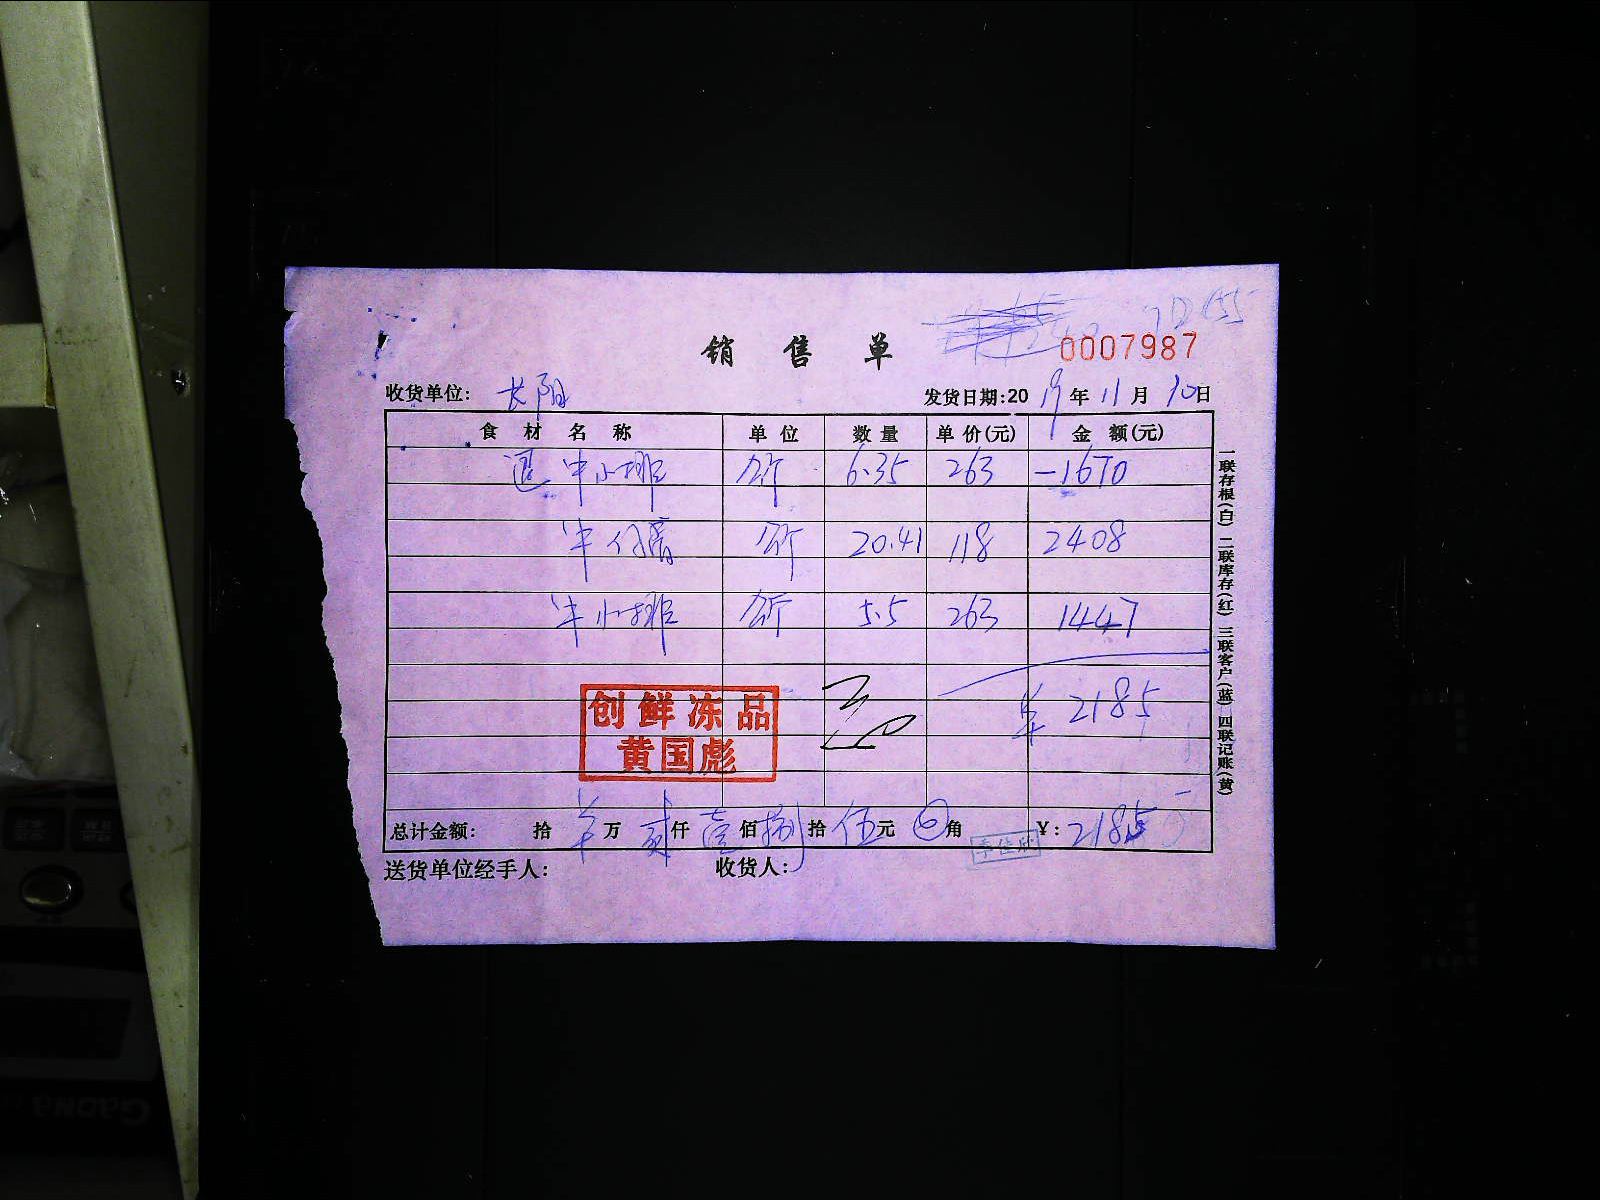 销售单
0007987
收货单位: 长阳 发货日期:2019年11月10日
食材名称 单位 数量 单价(元) 金额(元)
退牛小排 公斤 6.35 263 -1670
牛 公斤 20.41 118 2408
牛小排 公斤 5.5 263 1447
¥ 2185
创鲜冻品
黄国彪
总计金额: 拾 万 贰仟 壹佰 捌拾 伍元 角 ¥: 2185
送货单位经手人: 收货人:
一联存根(白) 二联库存(红) 三联客户(蓝) 四联记账(黄)